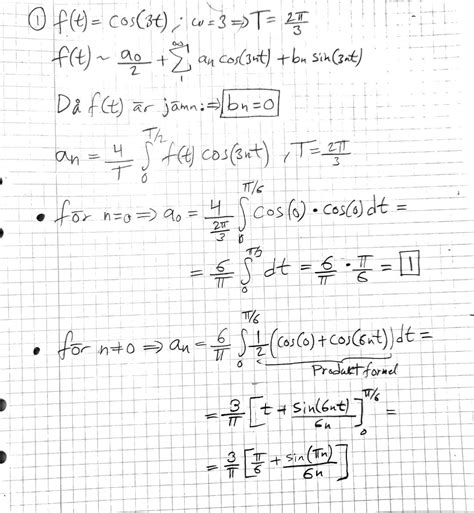 ① f(t) = cos(3t), ; ω = 3 ⇒ T = 2π/3
f(t) ~ a₀/2 + Σ₁^∞ aₙ cos(3nt) + bₙ sin(3nt)
Då f(t) är jämn: ⇒ bₙ = 0
aₙ = 4/T ∫₀^(T/2) f(t) cos(3nt) , T = 2π/3
• för n=0 ⇒ a₀ = 4/(2π/3) ∫₀^(π/6) cos(0) · cos(0) dt =
= 6/π ∫₀ dt = 6/π · π/6 = 1
• för n≠0 ⇒ aₙ = 6/π ∫₀^(π/6) 1/2 (cos(0) + cos(6nt)) dt =
Produkt formel
= 3/π [t + sin(6nt)/6n]₀^(π/6) =
= 3/π [π/6 + sin(πn)/6n]